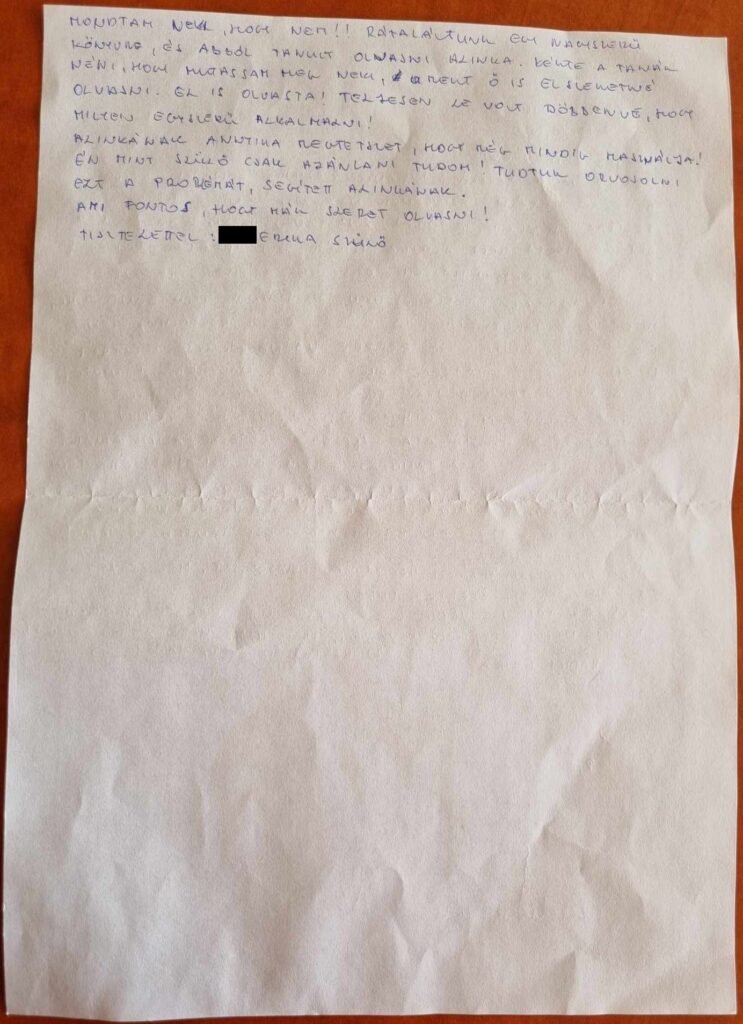 MONDTAM NEKI, HOGY NEM!! RÁTALÁLTUNK EGY NAGYSZERŰ
KÖNYVRE, ÉS ABBÓL TANULT OLVASNI ALINKA. KÉRTE A TANÁR
NÉNI, HOGY MUTASSAM MEG NEKI, MERT Ő IS EL SZERETNÉ
OLVASNI. EL IS OLVASTA! TELJESEN LE VOLT DÖBBENVE, HOGY
MILYEN EGYSZERŰ ALKALMAZNI!
ALINKÁNAK ANNYIRA MEGTETSZET, HOGY MÉG MINDIG HASNÁLJA!
ÉN MINT SZÜLŐ CSAK AJÁNLANI TUDOM! TUDTUK ORVOSOLNI
EZT A PROBLÉMÁT, SEGÍTETT ALINKÁNAK.
AMI FONTOS, HOGY MÁR SZERET OLVASNI!
TISZTELETTEL: ERIKA SZÜLŐ